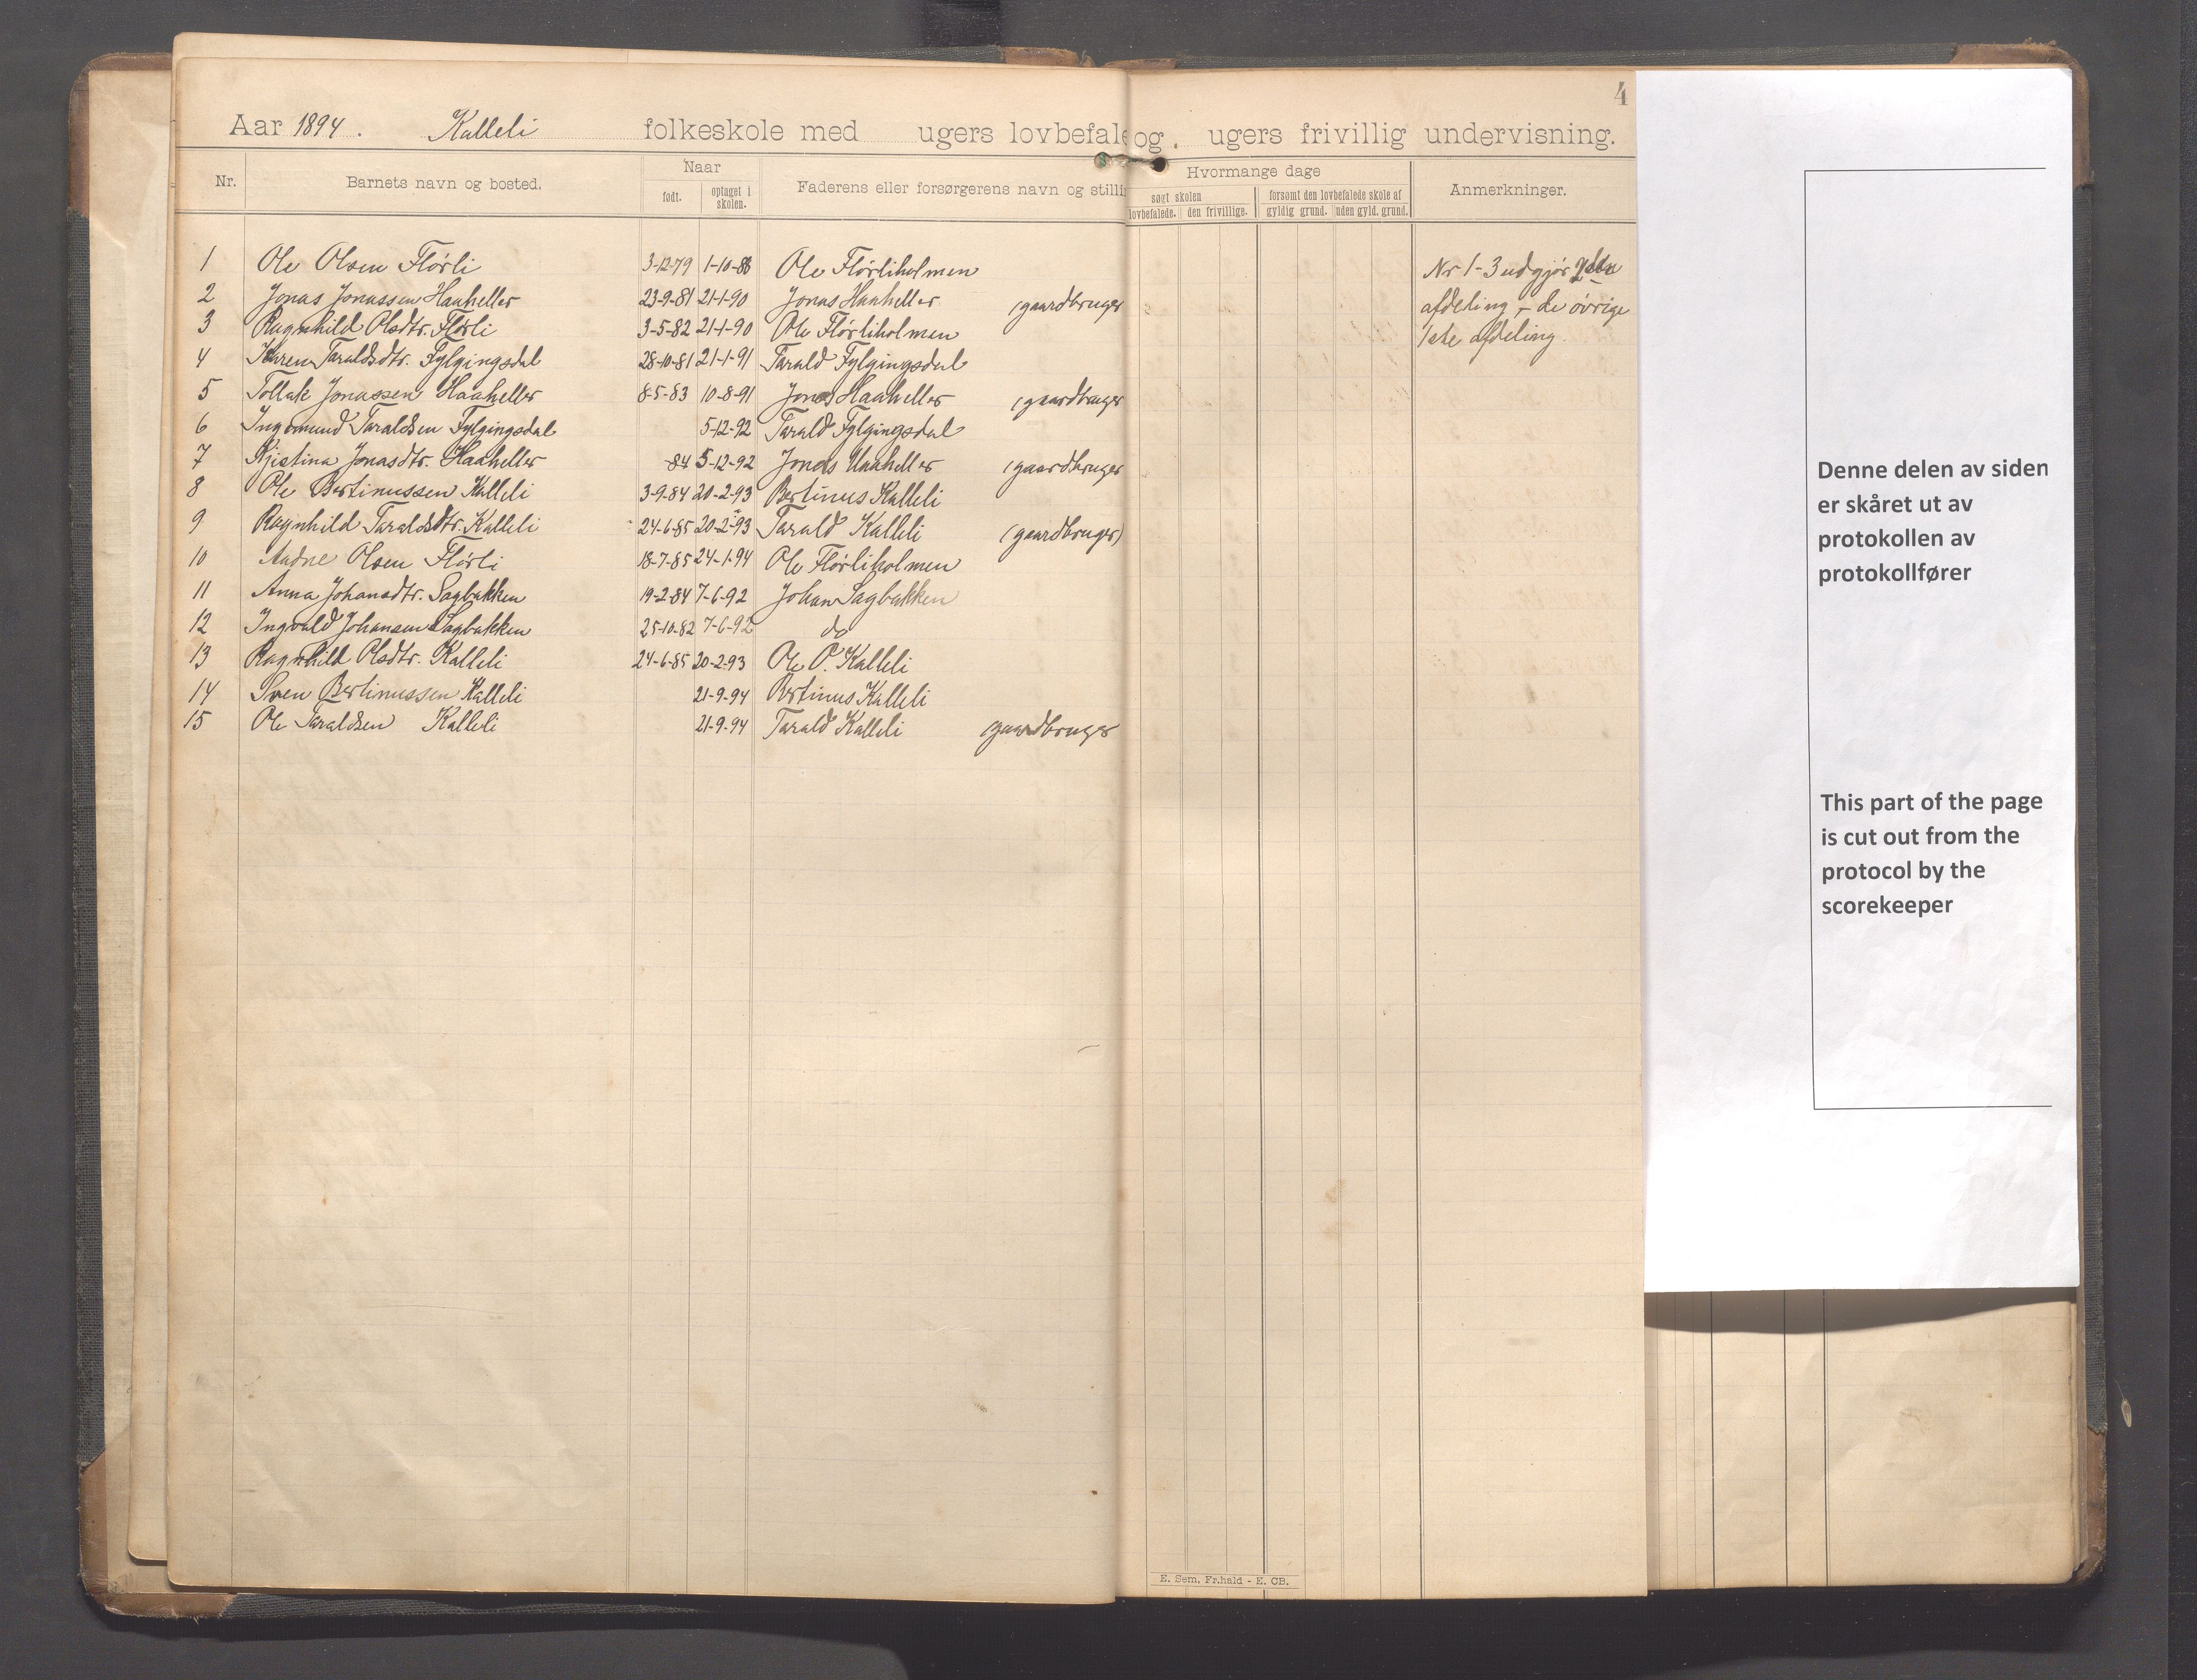 4
Aar 1894. Kalleli folkeskole med ugers lovbefale og ugers frivillig undervisning.
Nr. Barnets navn og bosted. Naar født. optaget i skolen. Faderens eller forsørgerens navn og stilli
Hvormange dage søgt skolen lovbefalede. den frivillige. forsømt den lovbefalede skole af gyldig grund. uden gyld. grund. Anmerkninger.
1 Ole Olsen Flörli 3-12-79 1-10-88 Ole Flörliholmen Nr 1-3 udgjör 2den
2 Jonas Jonassen Haaheller 23-9-81 21-1-90 Jonas Haaheller (gaardbruger afdeling - de övrige
3 Ragnhild Olsdtr. Flörli 3-5-82 21-1-90 Ole Flörliholmen 1ste afdeling.
4 Karen Taraldsdtr. Fylgingsdal 28-10-81 21-1-91 Tarald Fylgingsdal
5 Tollak Jonassen Haaheller 8-5-83 10-8-91 Jonas Haaheller (gaardbruger
6 Ingomund Taraldsen Fylgingsdal 5-12-92 Tarald Fylgingsdal
7 Kjistina Jonasdtr. Haaheller -84 5-12-92 Jonas Haaheller (gaardbruger
8 Ole Bertinussen Kalleli 3-9-84 20-2-93 Bertinus Kalleli
9 Ragnhild Taraldsdtr. Kalleli 24-6-85 20-2-93 Tarald Kalleli (gaardbruger)
10 Andne Olsen Flörli 18-7-85 24-1-94 Ole Flörliholmen
11 Anna Johansdtr. Sagbakken 19-2-84 7-6-92 Johan Sagbakken
12 Ingvald Johansen Sagbakken 25-10-82 7-6-92 do
13 Ragnhild Olsdtr. Kalleli 24-6-85 20-2-93 Ole O. Kalleli
14 Sven Bertinussen Kalleli 21-9-94 Bertinus Kalleli
15 Ole Taraldsen Kalleli 21-9-94 Tarald Kalleli (gaardbruger
E. Sem, Fr.hald - E. CB.
Denne delen av siden
er skåret ut av
protokollen av
protokollfører
This part of the page
is cut out from the
protocol by the
scorekeeper